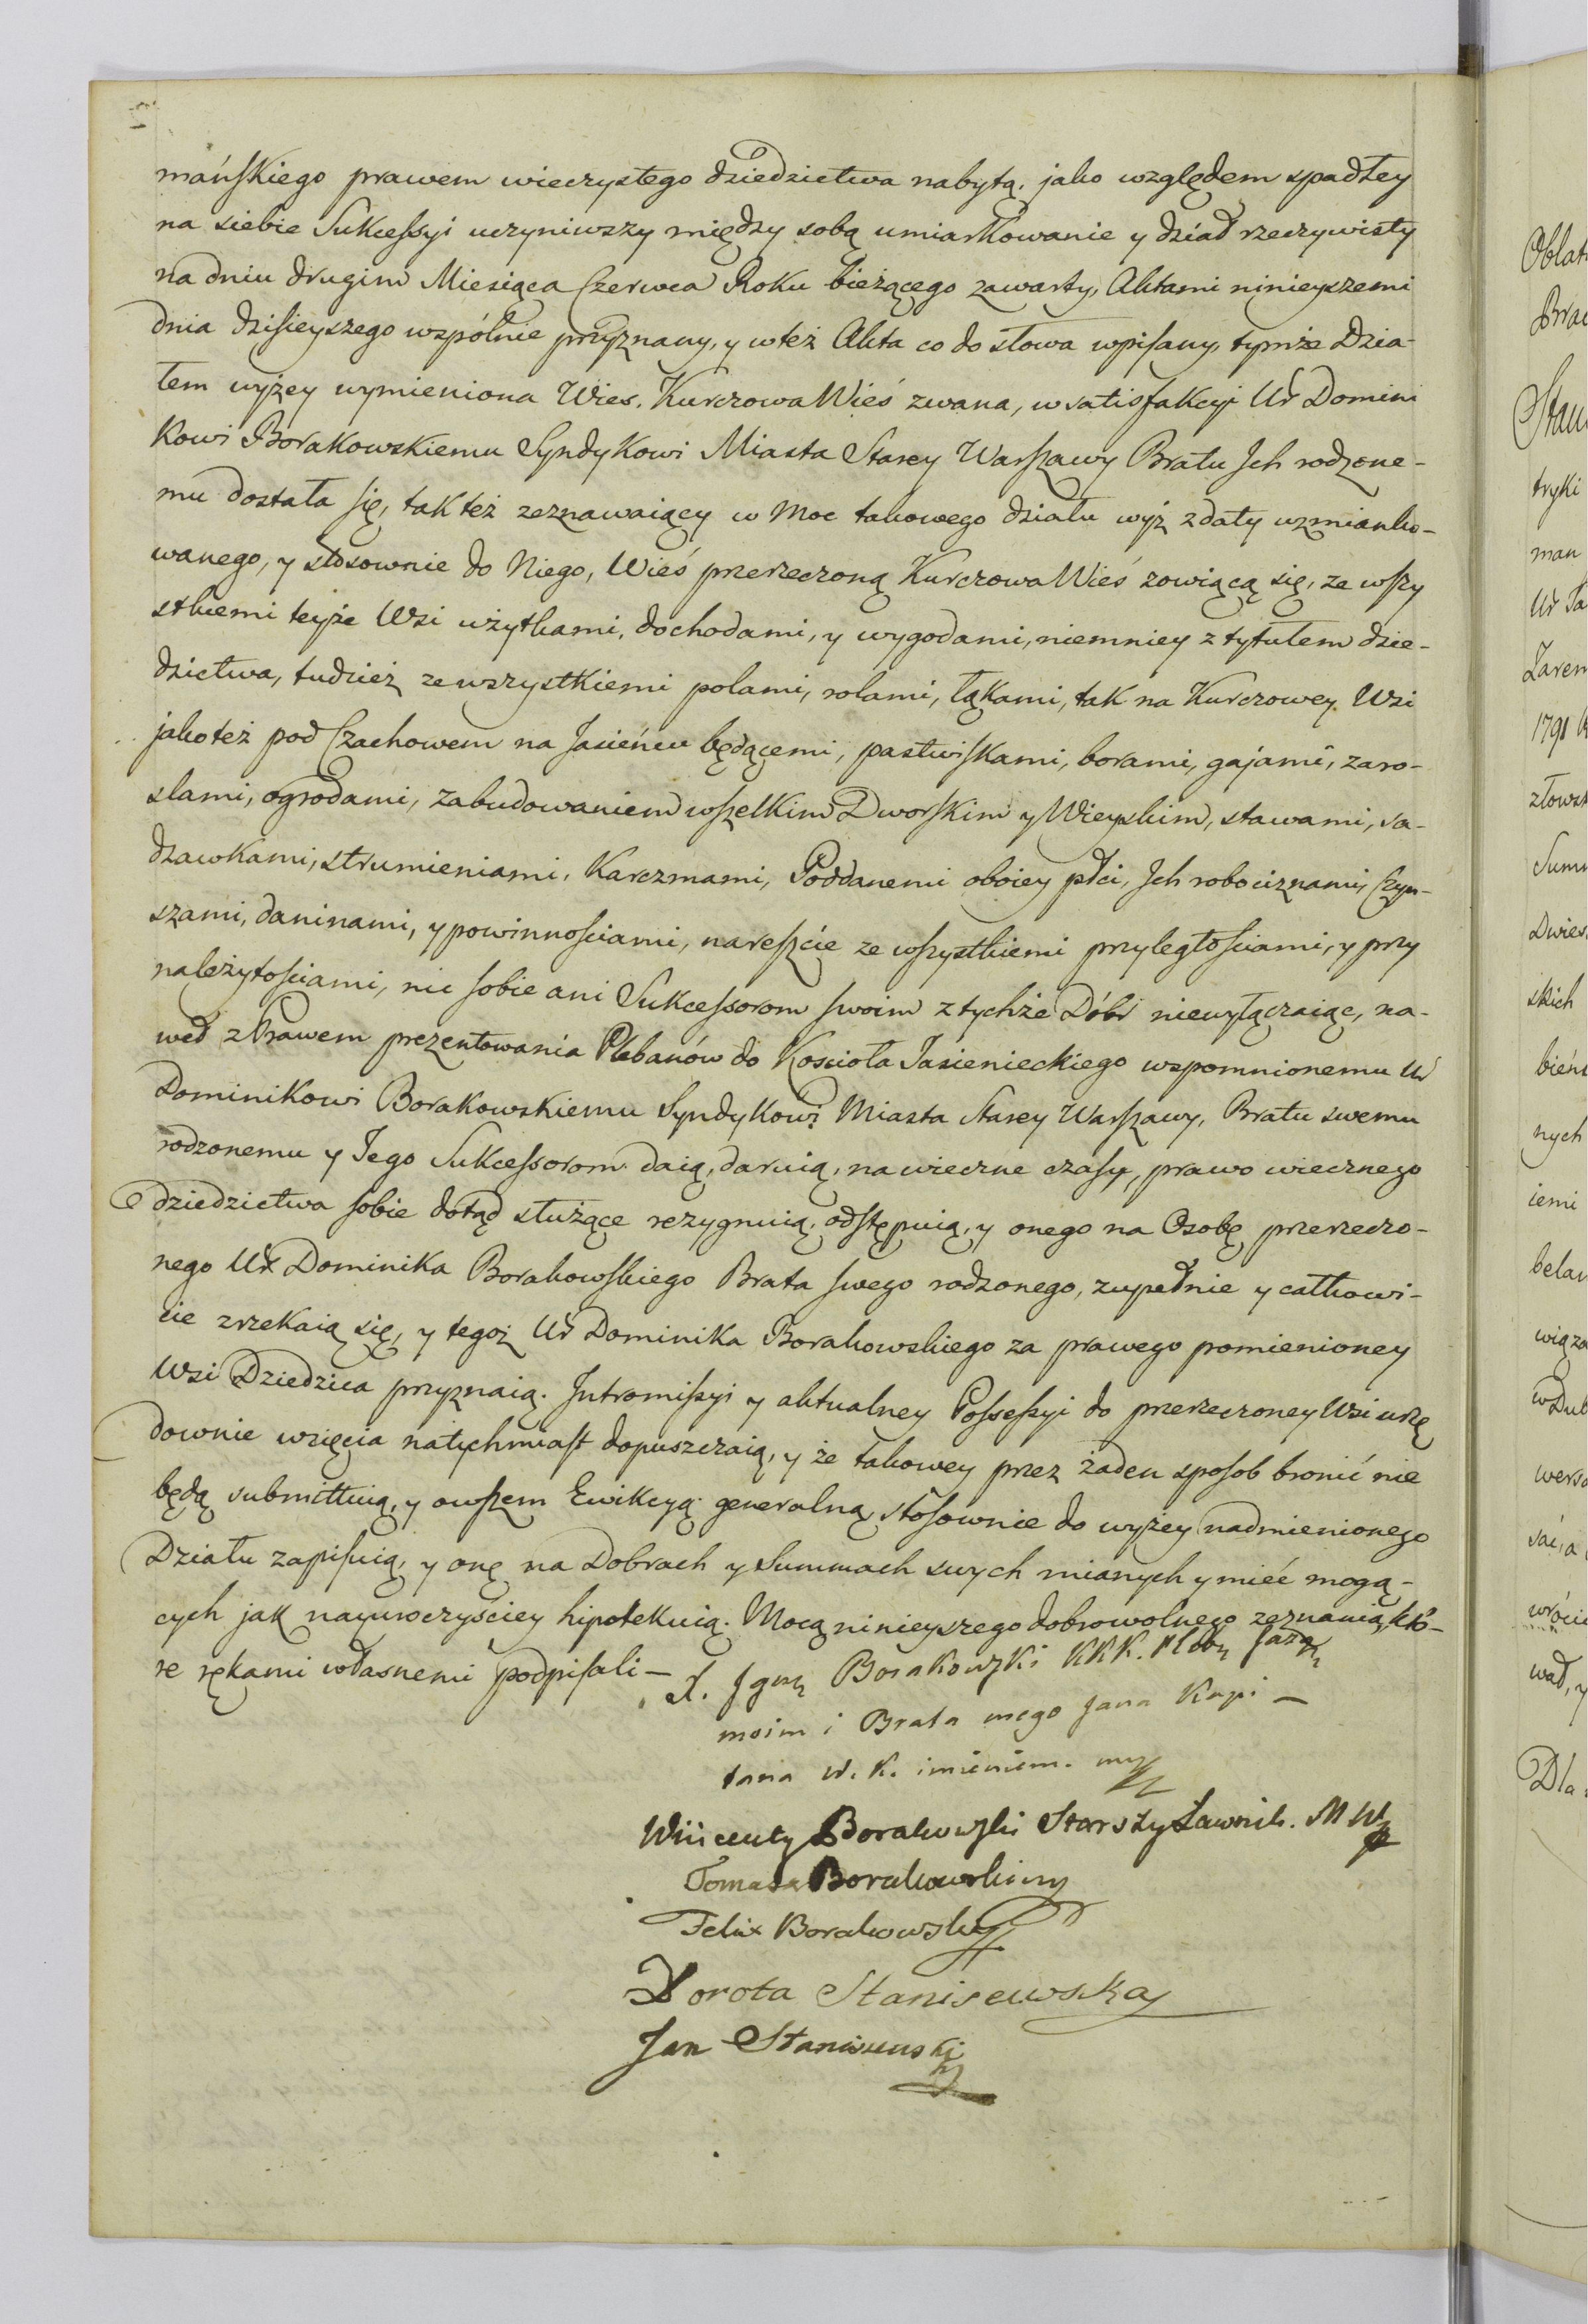 mańskiego prawem wieczystego dziedzictwa nabytą, jako względem spadłey
na siebie Sukcessyi uczyniwszy między sobą umiarkowanie y dział rzeczywisty
na dniu drugim Miesiąca Czerwca Roku bieżącego zawarty, Aktami ninieyszemi
dnia dzisieyszego wspólnie przyznany, y w też Akta co do słowa wpisany, tymże Dzia-
łem wyżey wymieniona Wies. Kurczowa Wieś zwana, w satisfakcyi Ur Domini
kowi Borakowskiemu Syndykowi Miasta Starey Warszawy Bratu Ich rodzone-
mu dostała się, tak też zeznawaiący w Moc takowego działu wyż z daty wzmianko-
wanego, y stosownie do Niego, Wieś przerzeczoną Kurczowa Wieś zowiącą się, ze wszy
stkiemi teyże Wsi użytkami, dochodami, y wygodami, niemniey z tytułem dzie-
dzictwa, tudzież ze wszystkiemi polami, rolami, łąkami, tak na Kurczowey Wsi
jako też pod Czachowem na Jasieńcu będącemi, pastwiskami, borami, gajami, zaro-
slami, ogrodami, zabudowaniem wszelkim Dworskim y Wieyskim, stawami, sa-
dzawkami, strumieniami, Karczmami, Poddanemi oboiey płci, Ich robociznami, Czyn-
szami, daninami, y powinnościami, nareszcie ze wszystkiemi przyległościami, y przy
należytościami, nic sobie ani Sukcessorom swoim z tychże Dóbr niewyłączaiąc, na-
wed z Prawem prezentowania Plebanów do Kościoła Jasienieckiego wspomnionemu Ur
Dominikowi Borakowskiemu Syndykowi Miasta Starey Warszawy, Bratu swemu
rodzonemu y Jego Sukcessorom daią, daruią, na wieczne czasy, prawo wiecznego
dziedzictwa sobie dotąd służące rezygnuią, odstępuią, y onego na Osobę przerzeczo-
nego Ur Dominika Borakowskiego Brata swego rodzonego, zupełnie y całkowi-
cie zrzekaią się, y tegoż Ur Dominika Borakowskiego za prawego pomienioney
Wsi Dziedzica przyznaią. Intromissyi y aktualney Possessyi do przerzeczoney Wsi urzę
downie wzięcia natychmiast dopuszczaią, y że takowey przez żaden sposob bronić nie
będą submittuią, y owszem Ewikcyą generalną stosownie do wyżey nadmienionego
Działu zapisuią, y onę na Dobrach y Summach swych mianych y mieć mogą-
cych jak nayuroczyściey hipotekuią. Mocą ninieyszego dobrowolnego zeznania, któ-
re rękami własnemi podpisali —
X. Igną Borakowski KKK. Pleb.
moim i Brata mego Jana Kapi-
tana W. K. imieniem. mp
Wincenty Borakowski Starszy Ławnik. M W
Tomasz Borakowski mp
Felix Borakowski
Dorota Staniseuwska
Jan Staniszewski
Oblat
Brac
Stan
tryki
man
Ur Ja
Zarem
1791
złowsk
Summ
Dwies
skich
bień
nych
iemi
belan
wiąza
w Dub
werso
sać, a
wrócie
wad, y
Dla